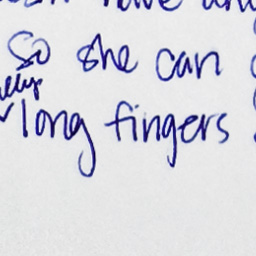 have
So she can
long fingers